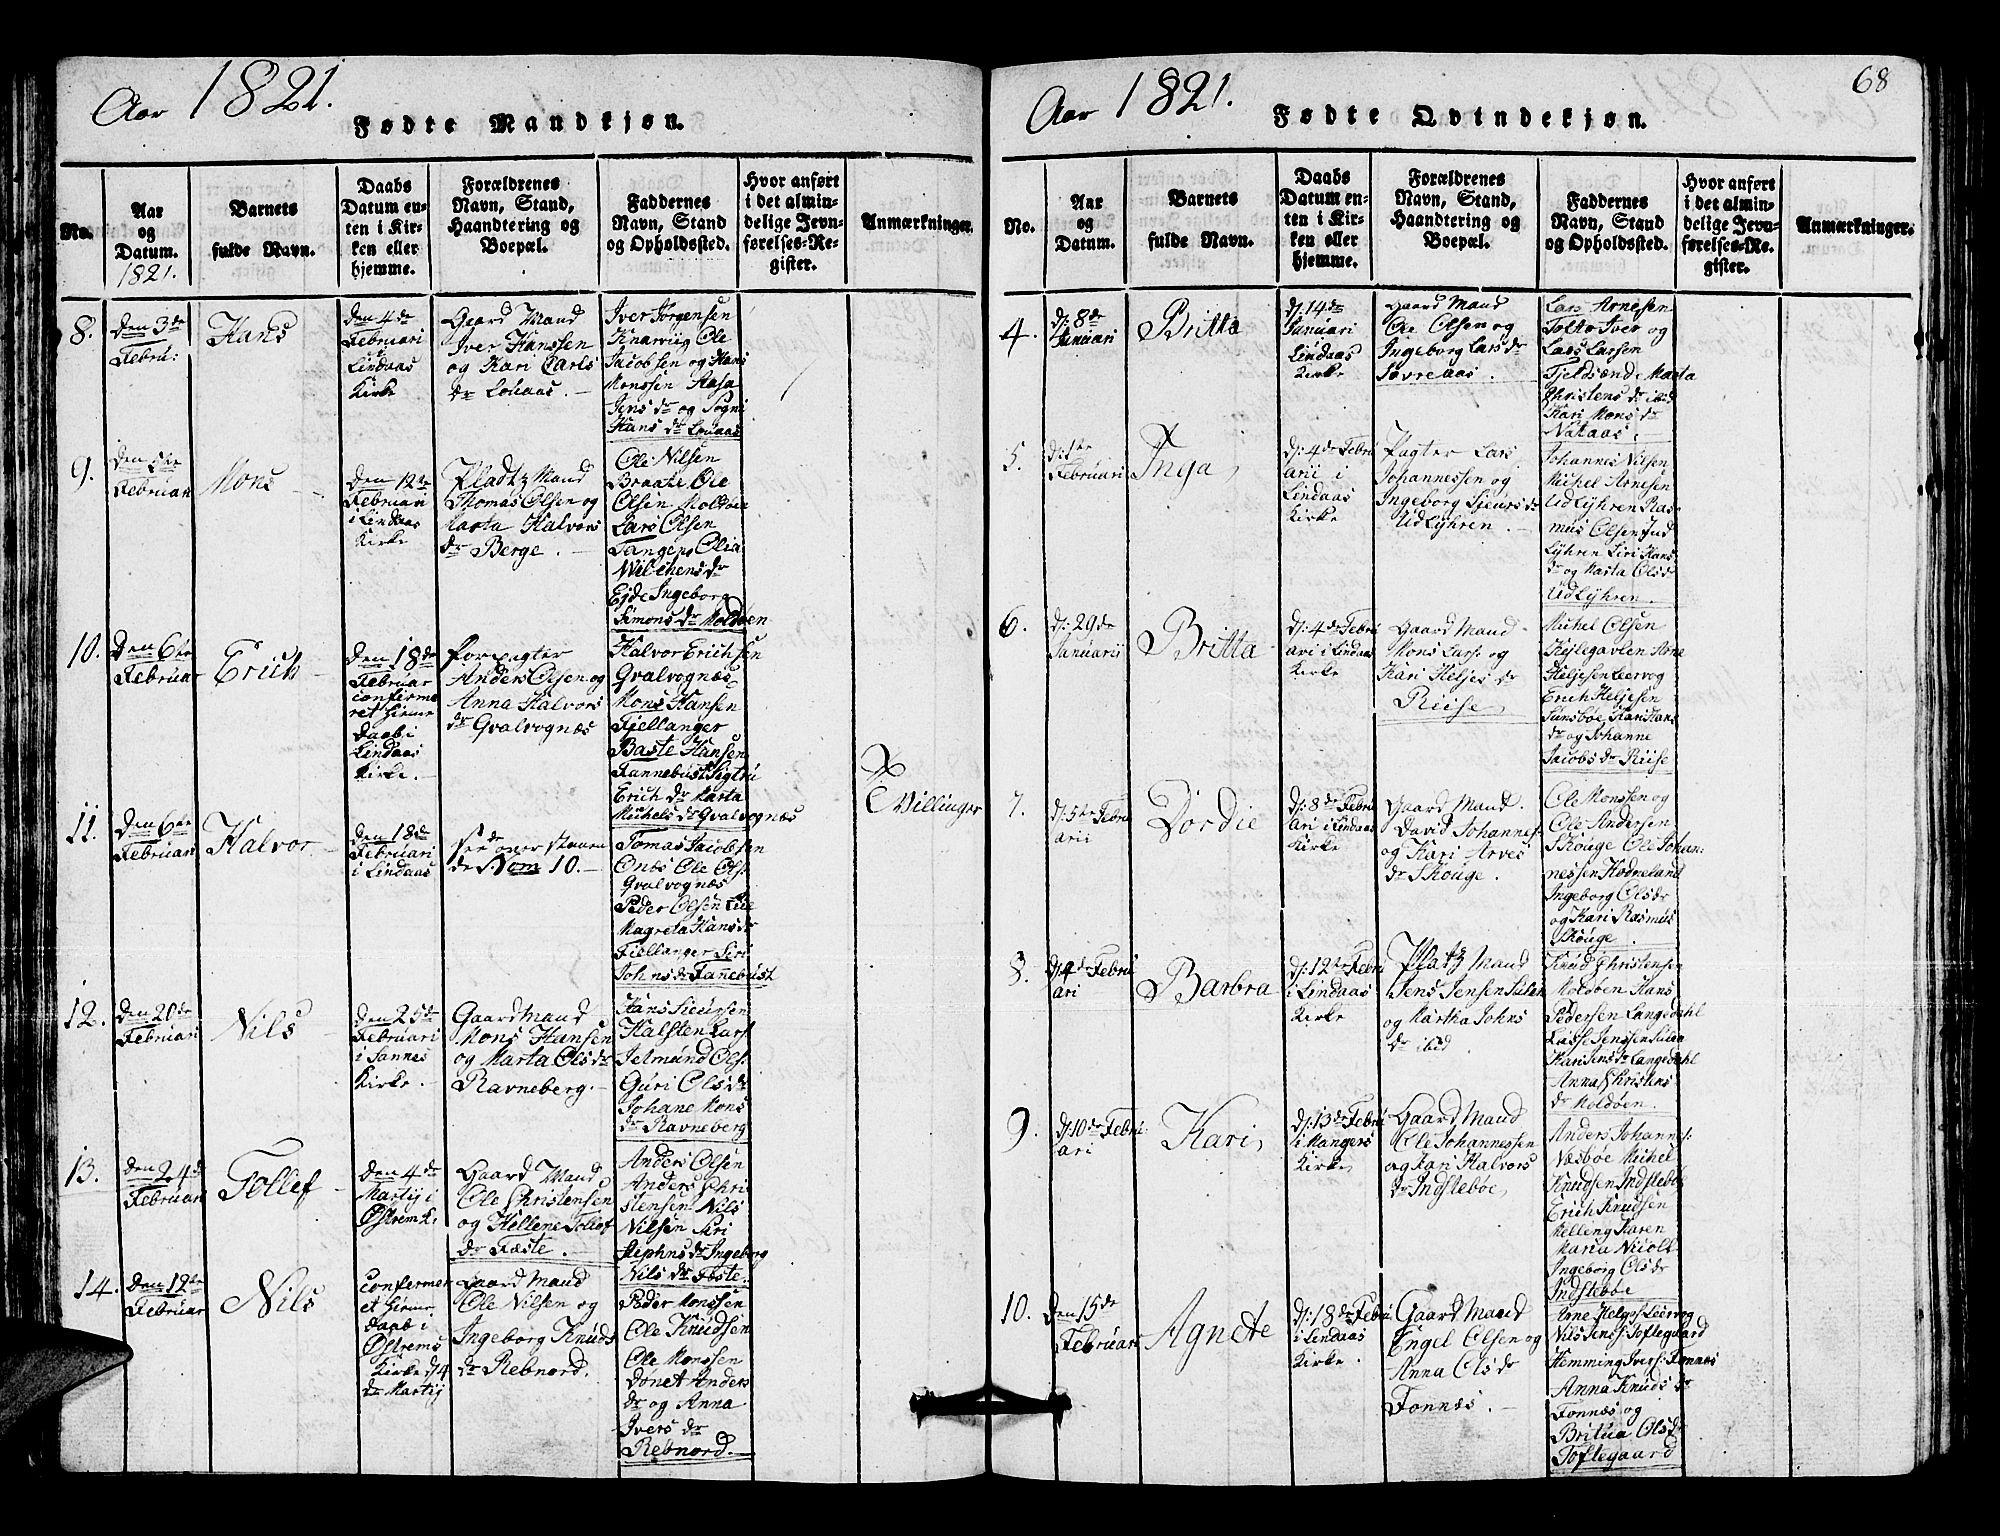 Aar 1821.
Fødte Mandkjøn.
No.
Aar
og
Datum.
1821.
Barnets
fulde Navn.
Daabs
Datum en-
ten i Kir-
ken eller
hjemme.
Forældrenes
Navn, Stand,
Haandtering og
Boepæl.
Faddernes
Navn, Stand
og Opholdssted.
Hvor anført
i det almin-
delige Jevn-
førelses-Re-
gister.
Anmærkninger.
8.
Den 3de
Febru:
Hans
Den 4de
Februari
Lindaas
Kirke
Gaard Mand
Iver Hanssen
og Kari Carls
dr Lonaas.
Iver Jørgensen
Knarvig Ole
Jacobsen og Hans
Monssen Aasa
Jens dr og Sogni
Hans dr Lonaas
9.
Den 5te
Februari
Mons
Den 12te
Februari
i Lindaas
Kirke
Pladtz Mand
Thomas Olsen og
Marta Halvors
dr Berge.
Ole Nilsen
Braate Ole
Olsen Moltøen
Lars Olsen
Tangen Olia
Wilchens dr
Eide Ingeborg
Simons dr Moldøen
10.
Den 6te
Februar
Erich
Den 18de
Februar
confirme
ret hieme
Daab i
Lindaas
Kirke.
forpagter
Anders Olsen og
Anna Halvors
dr Qvalvognæs
Halvor Erichsen
Qvalvognæs
Mons Hansen
Fjellanger
Baste Hansen
Fannebust Sigtru
Erich dr Marta
Michels dr Qvalvognæs
Tvillinger
11.
Den 6te
Februari
Halvor
Den 18de
Februari
i Lindaas
see over staaen
de Nom 10.
Tomas Jacobsen
Onæs Ole Ols:
Qvalvognæs
Peder Olsen Lie
Magreta Hans dr
Fiellanger Siri
Johns dr Fanebust
12.
Den 20de
Februari
Nils
Den 25de
Februari
i Sannes
Kirke.
Gaard Mand
Mons Hansen
og Marta Ols dr
Ravneberg.
Hans Sieursen
Halsten Lars:
Jetmund Ols:
Guri Ols dr
Johane Mons
dr Ravneberg
13.
Den 24d
Februari
Tollef
Den 4de
Martij i
Østrem K.
Gaard Mand
Ole Christensen
og Hellene Tollef
dr Fæste.
Anders Olsen
Anders Chri
stensen Nils
Nilsen Siri
Stephns dr Ingeborg
Nils dr Føste.
14.
Den 12te
Februar
Nils
confermer
et hieme
daab i
Østrems
Kirke d 4
de Martij
Gaard Mand
Ole Nilsen og
Ingeborg Knuds
dr Rebnord.
Peder Monssen
Ole Knudsen
Ole Monssen
Donet Anders
dr og Anna
Ivers dr
Rebnord.
68
Aar 1821.
Fødte Qvindekjøn.
No.
Aar
og
Datum.
Barnets
fulde Navn.
Daabs
Datum en-
ten i Kir-
ken eller
hjemme.
Forældrenes
Navn, Stand,
Haandtering og
Boepæl.
Faddernes
Navn, Stand
og Opholdssted.
Hvor anført
i det almin-
delige Jevn-
førelses-Re-
gister.
Anmærkninger.
4.
d: 8de
Januari
Britta
d: 14de
Januari
Lindaas
Kirke
Gaard Mand
Ole Olsen og
Ingeborg Lars dr
Sovreaas.
Lars Arnesen
Tolto Iver og
Lars Larsen
Fjeldsænde Marta
Christens dr ibid
Kari Mons dr
Nataas.
5.
d: 1te
Februari
Inga
d: 4de Febru
arii i
Lindaas
Kirke
Pagter Lars
Johannessen og
Ingeborg Sjeurs dr
Udlyhren.
Johannes Nilsen
Michel Arnesen
Udlyhren Ras-
mus Olsen Ind
Lyhren Siri Hans
dr og Marta Ols dr
Udlyhren.
6.
d: 29de
Januarii
Britta
d: 4de Febru
ari i Lindaas
Kirke
Gaard Mand
Mons Lars: og
Kari Heljes dr
Riise
Michel Olsen
Kejlegavlen Arne
Heljesen Leervog
Erich Heljesen
Sunsbøe Kari Hans
dr og Johanne
Jacobs dr Riise
7.
d: 5te Febru
arii
Dordie
d: 8de Febru
ari i Lindaas
Kirke
Gaard Mand.
David Johannes:
og Kari Arves
dr Skouge.
Ole Monssen og
Ole Andersen
Skouge Ole Johan:
nessen Hodneland
Ingeborg Ols dr
og Kari Rasmus
Skouge.
8.
d: 4de Febru
ari
Barbra
d: 12te Febru
i Lindaas
Kirke
Platz Mand
Jens Jensen Sulen
og Martha Johns
dr ibid
Knud Christensen
Moldøen Hans
Pedersen Langedahl
Lasse Jenssen Sulen
Kari Jens dr Langedahl
Anna Christens
dr Moldøen.
9.
d: 10de Febru
ari
Kari
d: 13de Febru
i Mangers
Kirke
Gaard Mand
Ole Johannessen
og Kari Halvors
dr Indstebøe
Anders Johannes:
Næsbøe Michel
Knudsen Indstebøe
Erich Knudsen
Helleng Karen
Maria Nicols
Ingeborg Ols dr
Indstebøe
10.
Den 15de
Februari
Agnete
d: 18de Febru
i Lindaas
Kirke.
Gaard Mand
Engel Olsen og
Anna Ols dr
Fonnæs.
Arne Helges: Leervog
Nils Jens: Toftegaard
Hemming Ivers: Fonnæs
Anna Knuds dr
Fonnæs og
Brita Ols dr
Toftegaard